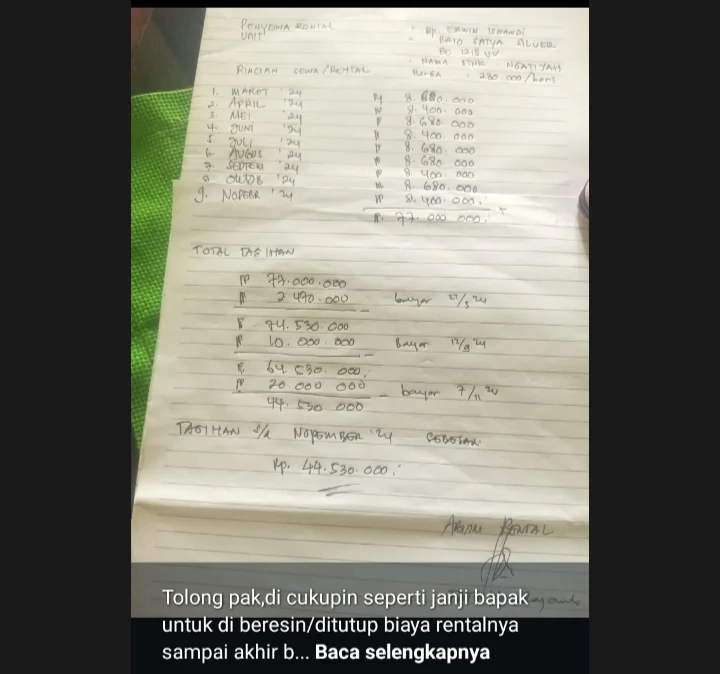 PENYEWA RENTAL : Bp. ERWIN ISNANDI
UNIT : BRIO SATYA SILVER
: NAMA STNK : NGATIYAH
RINCIAN SEWA/RENTAL HARGA : 280.000/HARI
1. MARET '24 Rp 8.680.000
2. APRIL '24 Rp 8.400.000
3. MEI '24 Rp 8.680.000
4. JUNI '24 Rp 8.400.000
5. JULI '24 Rp 8.680.000
6. AUGUS '24 Rp 8.680.000
7. SEPTEM '24 Rp 8.400.000
8. OKTOB '24 Rp 8.680.000
9. NOPEBR '24 Rp 8.400.000,- +
Rp. 77.000.000,-
TOTAL TAGIHAN
Rp 77.000.000
Rp 2.470.000 - bayar
Rp 74.530.000
Rp 10.000.000 - bayar 12/9 24
Rp. 64.530.000,-
Rp 20.000.000 - bayar 7/11 24
44.530.000
TAGIHAN S/d NOPEMBER '24 SEBESAR.
Rp. 44.530.000,-
RENTAL
Tolong pak,di cukupin seperti janji bapak
untuk di beresin/ditutup biaya rentalnya
sampai akhir b... Baca selengkapnya